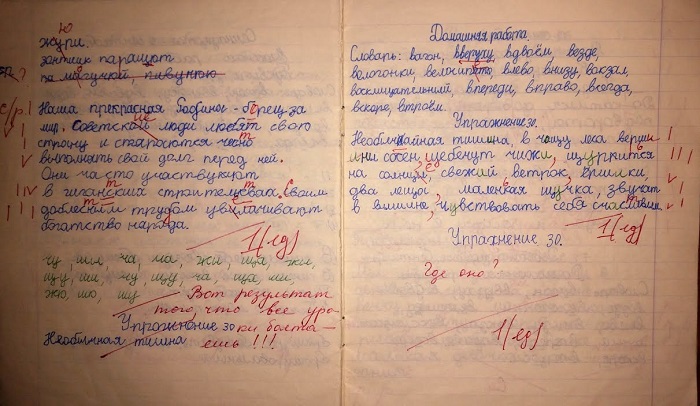 ю
жури.
зонтик паращют
С/р.
Наша прекрасная Родина - борец за
мир. Советской люди любят свою
строну и стораются чесно
выполнять свой долг перед ней.
Они часто участвуют
в гиганских строительствах, своим
доблесним трудом
богатство народа.
1(ед)
чу, ши, ча, ма, жи, ща, жи,
щу, ши, чу, щу, ча, ща, ши,
жо, шо, шу
Вот результат
того, что все уро-
ки болта-
ешь!!!
Упражнение 30
Необычная тишина
Домашняя работа.
Словарь: вагон, вверху, вдвоём, везде,
велосипед, влево, внизу, вокзал,
восклицательний, впереди, вправо, всегда,
вскоре, втроём.
Упражнение 30.
тишина, в чащу леса верши
сосен, щебечут чижи, щурится
на солнце, свежий ветрок, крылки,
два леща, маленкая щучка, звучат
в вишине, чувствовать себя счасливим
1(ед)
Упражнение 30.
Где оно?
1(ед)